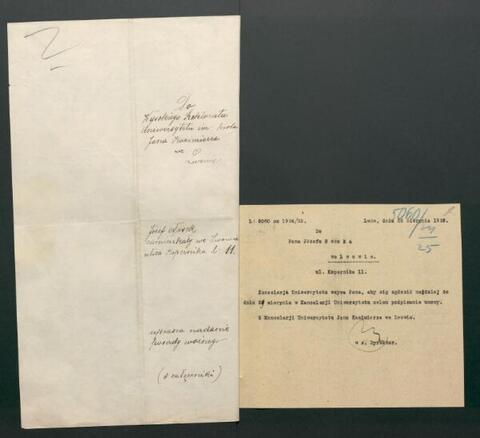 Do
Wysokiego Rektoratu
Uniwersytetu im. Króla
Jana Kazimierza
we
Lwowie
Józef
zamieszkały we Lwowie
ulica Kopernika l. 11.
wprasza nadanie
posady woźnego
(3 załączniki)
5060/24
25
L: 5060 ex 1924/25. Lwów, dnia sierpnia 1925.
Do
Pana Józefa
we Lwowie.
ul. Kopernika 11.
Kancelarja Uniwersytetu wzywa Pana, aby się zgłosił najdalej do
dnia sierpnia w Kancelarji Uniwersytetu celem podpisania umowy.
Z Kancelarji Uniwersytetu Jana Kazimierza we Lwowie.
w z. Dyrektor.